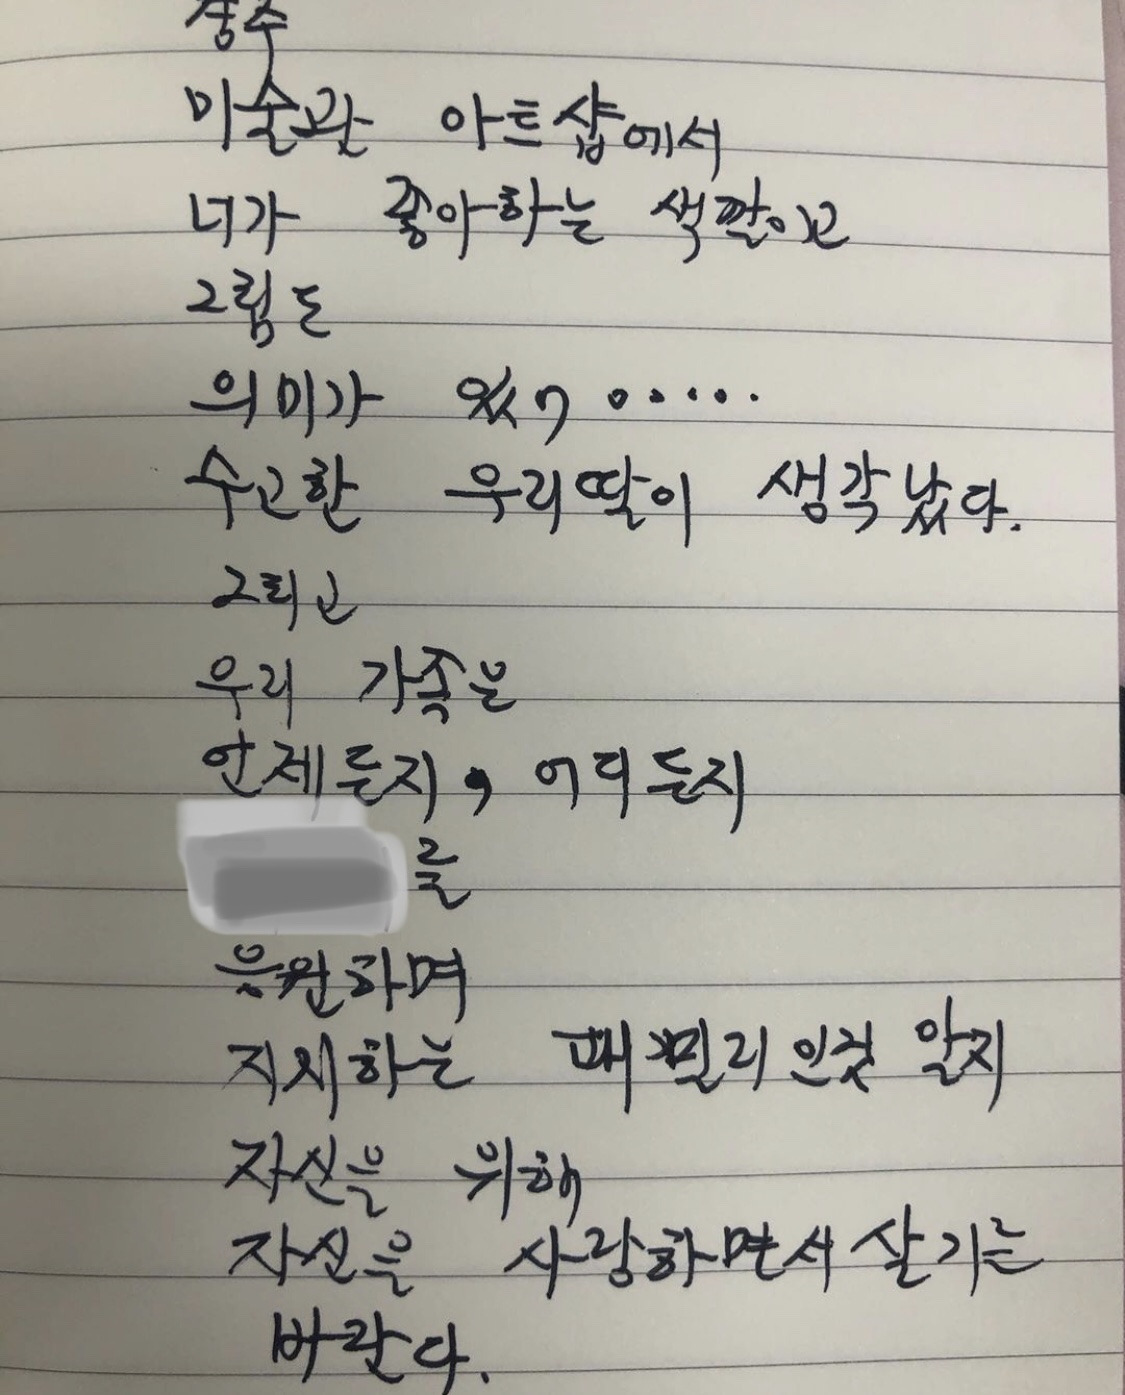 미술관 아트샵에서
너가 좋아하는 색깔이고
그림도
의미가 있어.....
수고한 우리딸이 생각났다.
그리고
우리 가족은
언제든지, 어디든지
를
응원하며
지지하는 패밀리인것 알지
자신을 위해
자신을 사랑하면서 살기를
바란다.